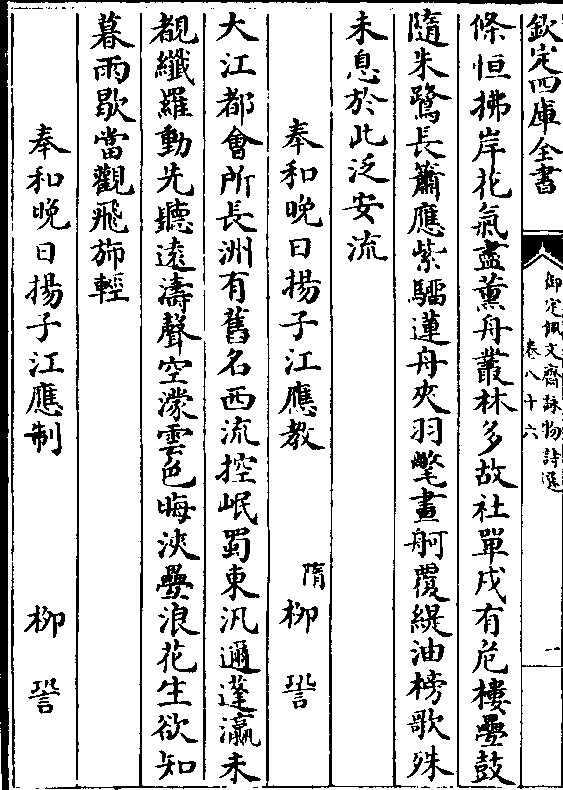 欽定四庫全書
御定佩文齋詠物詩選
卷八十六
一
條恒拂岸花氣盡薰舟叢林多故社單戍有危樓疊鼓
隨朱鷺長簫應紫騮蓮舟夾羽氅畫舸覆緹油榜歌殊
未息於此泛安流
奉和晚日揚子江應教 隋 柳䛒
大江都會所長洲有舊名西流控岷蜀東汎邇蓬瀛未
覩纖羅動先聽遠濤聲空濛雲色晦浹疊浪花生欲知
暮雨歇當觀飛斾輕
奉和晚日揚子江應制 柳䛒